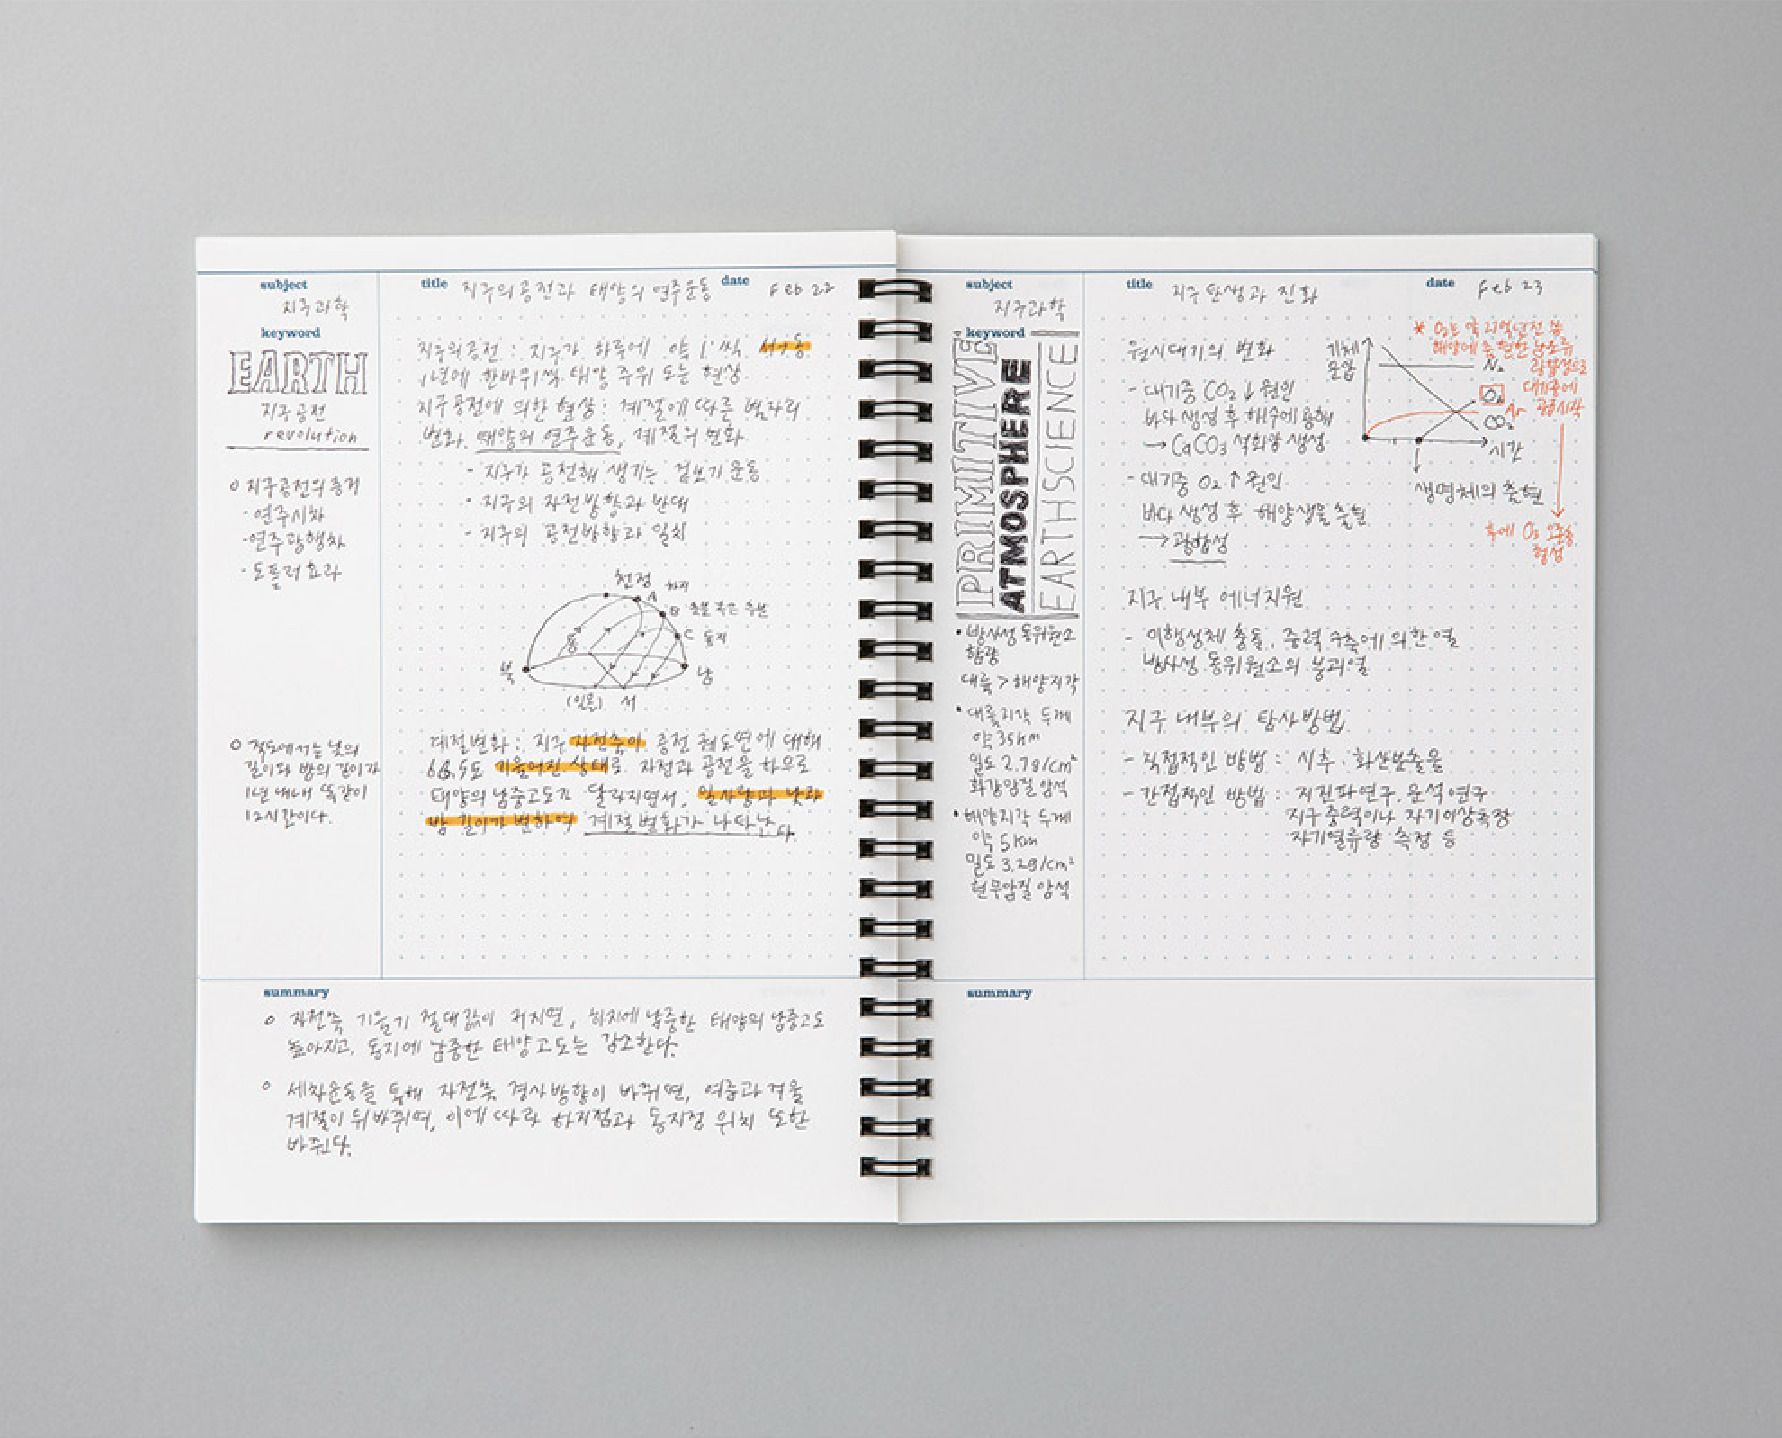 subject
지구과학
keyword
EARTH
지구공전
revolution
○ 지구공전의 증거
· 연주시차
· 연주광행차
· 도플러효과
○ 적도에서는 낮의
길이와 밤의 길이가
1년 내내 똑같이
12시간이다.
title 지구의 공전과 태양의 연주운동 date Feb 22
지구의 공전 : 지구가 하루에 약 1°씩 서→동
1년에 한바퀴씩 태양 주위 도는 현상
지구 공전에 의한 현상 : 계절에 따른 별자리
변화, 태양의 연주운동, 계절의 변화
- 지구가 공전해 생기는 겉보기 운동
- 지구의 자전방향과 반대
- 지구의 공전방향과 일치
천정
A 하지
B 춘분 혹은 추분
C 동지
동
북
남
(일몰) 서
계절변화 : 지구 자전축이 공전 궤도면에 대해
66.5도 기울어진 상태로 자전과 공전을 하므로
태양의 남중고도가 달라지면서, 일사량과 낮과
밤 길이가 변하여 계절변화가 나타난다
summary
○ 자전축 기울기 절대값이 커지면, 하지에 남중한 태양의 남중고도
높아지고, 동지에 남중한 태양고도는 감소한다.
○ 세차운동을 통해 자전축 경사방향이 바뀌면, 여름과 겨울
계절이 뒤바뀌며, 이에 따라 하지점과 동지점 위치 또한
바뀐다.
subject
지구과학
keyword
PRIMITIVE
ATMOSPHERE
EARTH SCIENCE
• 방사성 동위원소
함량
대륙 > 해양지각
• 대륙지각 두께
약 35km
밀도 2.7g/cm³
화강암질 암석
• 해양지각 두께
약 5km
밀도 3.2g/cm³
현무암질 암석
title 지구 탄생과 진화 date Feb 23
원시대기의 변화
- 대기중 CO₂ ↓ 원인
바다 생성 후 해수에 용해
→ CaCO₃ 석회암 생성
- 대기중 O₂ ↑ 원인
바다 생성 후 해양생물 출현
→ 광합성
기체
분압
N₂
O₂
Ar
CO₂
시간
생명체의 출현
* O₂는 약 전 쯤
해양에 출현한 남조류
광합성으로
대기중에
공급시작
후에 O₃ 오존층
형성
지구 내부 에너지원
- 미행성체 충돌, 중력 수축에 의한 열
방사성 동위원소의 붕괴열
지구 내부의 탐사방법
- 직접적인 방법 : 시추, 화산분출물
- 간접적인 방법 : 지진파연구, 운석연구
지구 중력이나 자기이상측정
지각열류량 측정 등
summary